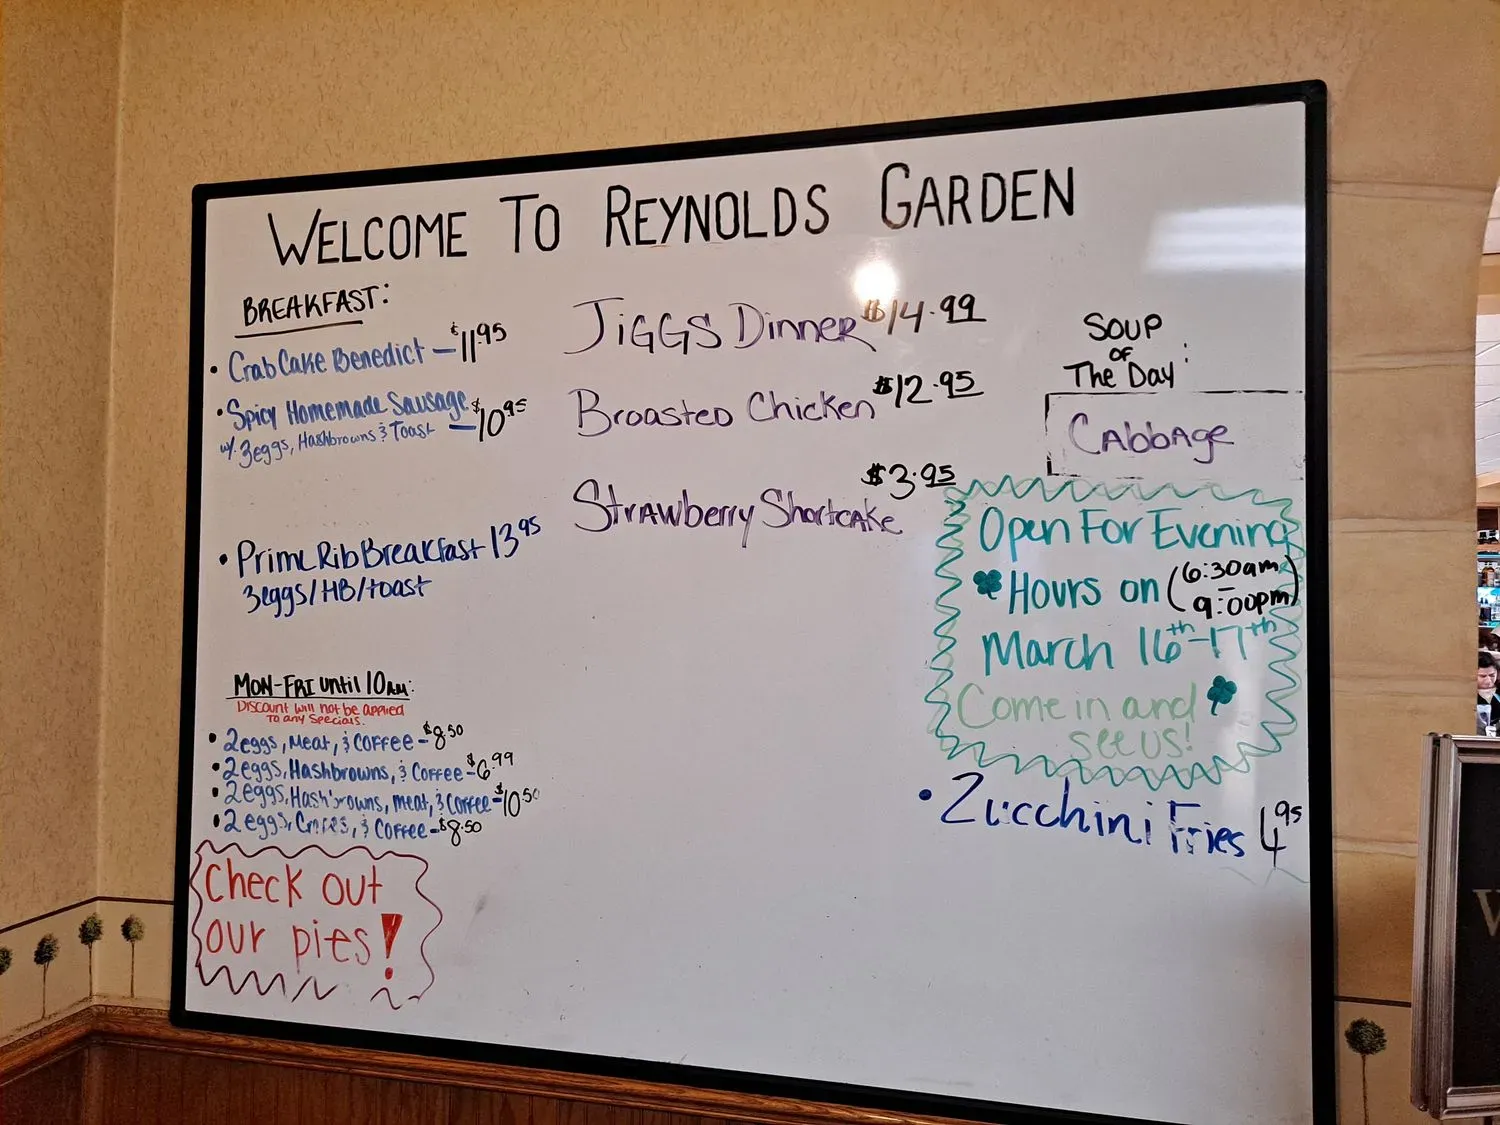 WELCOME TO REYNOLDS GARDEN
BREAKFAST:
• Crab Cake Benedict — $11.95
• Spicy Homemade Sausage — $10.95
w/ 3eggs, Hashbrowns & Toast
• Prime Rib Breakfast 13.95
3eggs/HB/toast
MON-FRI until 10AM:
Discount will not be applied
to any specials.
• 2eggs, Meat, & Coffee - $8.50
• 2eggs, Hashbrowns, & Coffee - $6.99
• 2eggs, Hashbrowns, meat, & Coffee - $10.50
• 2 eggs, & Coffee - $8.50
Check out
our pies!
JiGGS Dinner $14.99
Broasted Chicken $12.95
Strawberry Shortcake $3.95
SOUP
OF
The Day:
Cabbage
Open For Evening
Hours on (6:30am
– 9:00pm)
March 16th-17th
Come in and
see us!
• Zucchini Fries 4.95
W